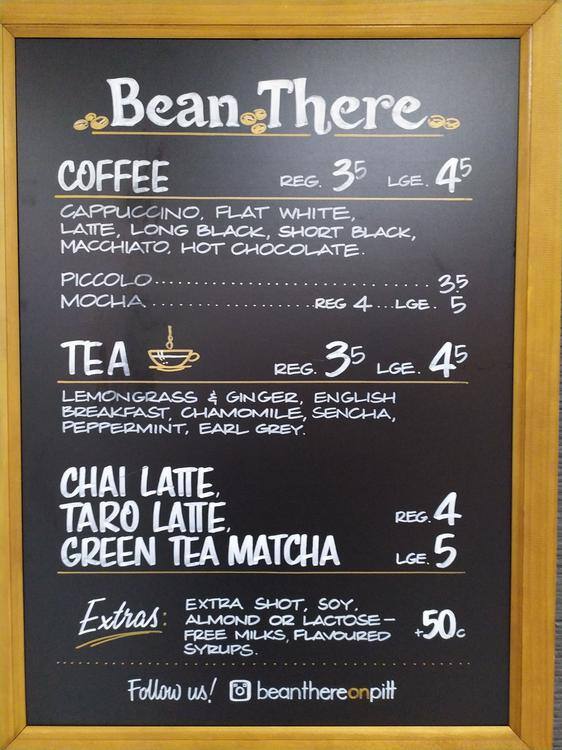 Bean There
COFFEE REG. 35 LGE. 45
CAPPUCCINO, FLAT WHITE,
LATTE, LONG BLACK, SHORT BLACK,
MACCHIATO, HOT CHOCOLATE.
PICCOLO.............................. 3.5
MOCHA.................REG 4...LGE. 5
TEA REG. 35 LGE. 45
LEMONGRASS & GINGER, ENGLISH
BREAKFAST, CHAMOMILE, SENCHA,
PEPPERMINT, EARL GREY.
CHAI LATTE,
TARO LATTE, REG. 4
GREEN TEA MATCHA LGE. 5
Extras: EXTRA SHOT, SOY,
ALMOND OR LACTOSE-
FREE MILKS, FLAVOURED +50c
SYRUPS.
Follow us! beanthereonpitt